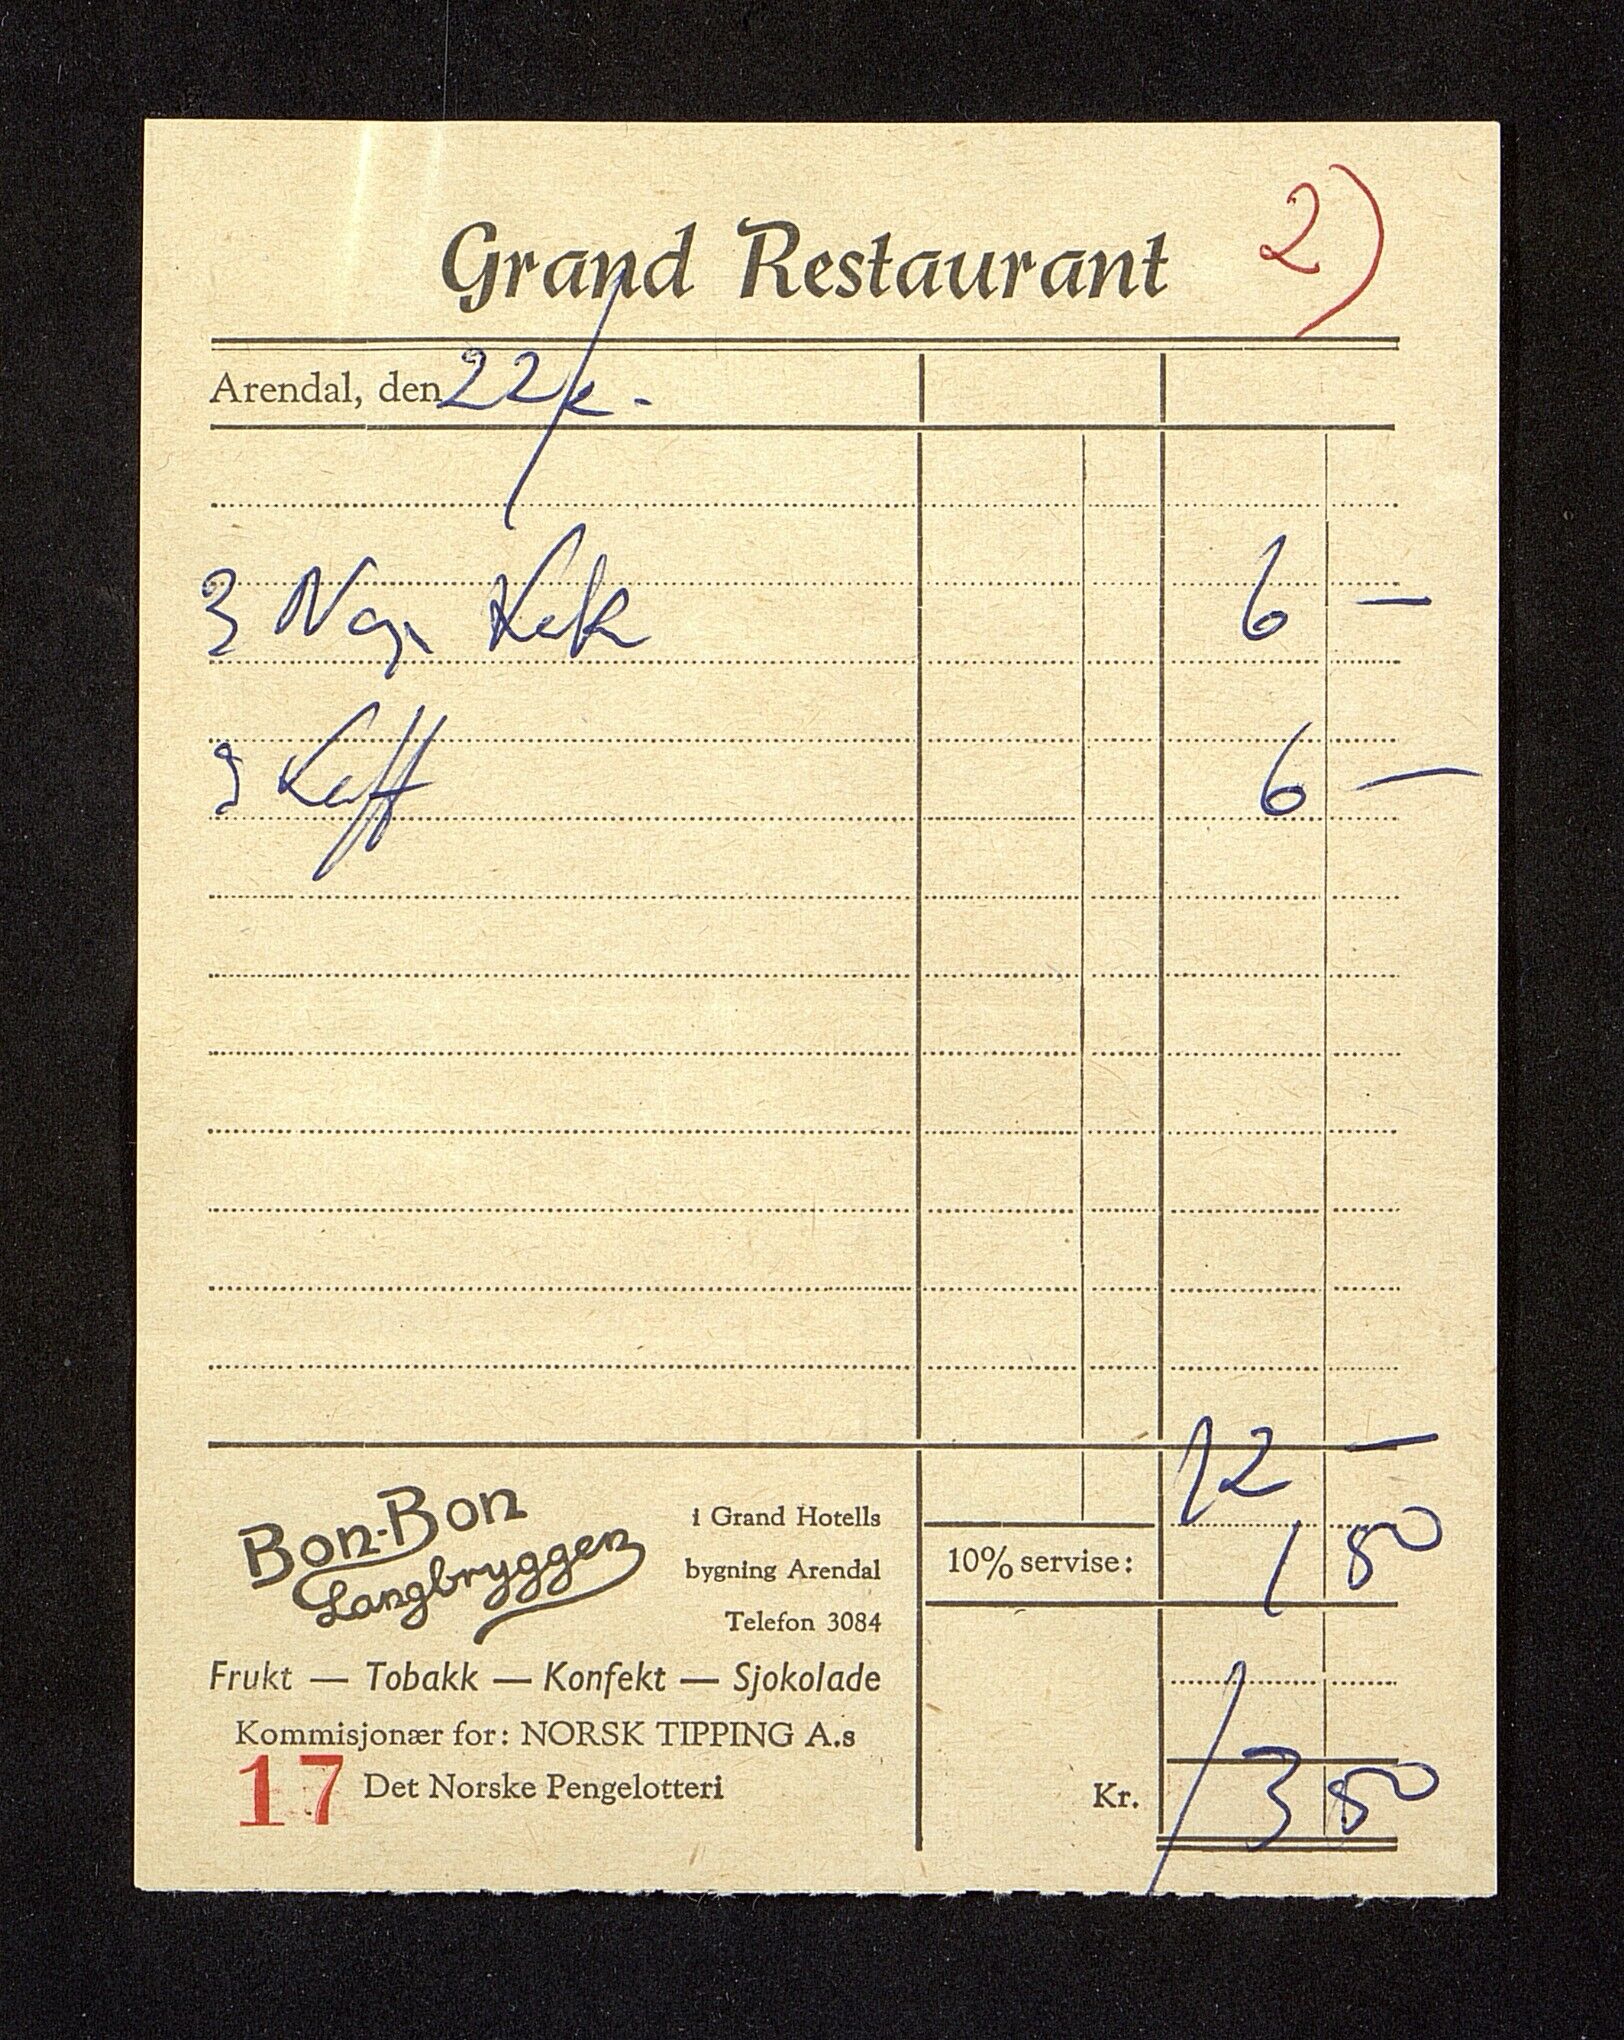 2)
Grand Restaurant
Arendal, den 22/2.
3 Kak 6 —
3 Kaff 6 —
12 —
10% servise: 1 80
Kr. 13 80
Bon-Bon
Langbryggen
i Grand Hotells
bygning Arendal
Telefon 3084
Frukt — Tobakk — Konfekt — Sjokolade
Kommisjonær for: NORSK TIPPING A.s
17 Det Norske Pengelotteri